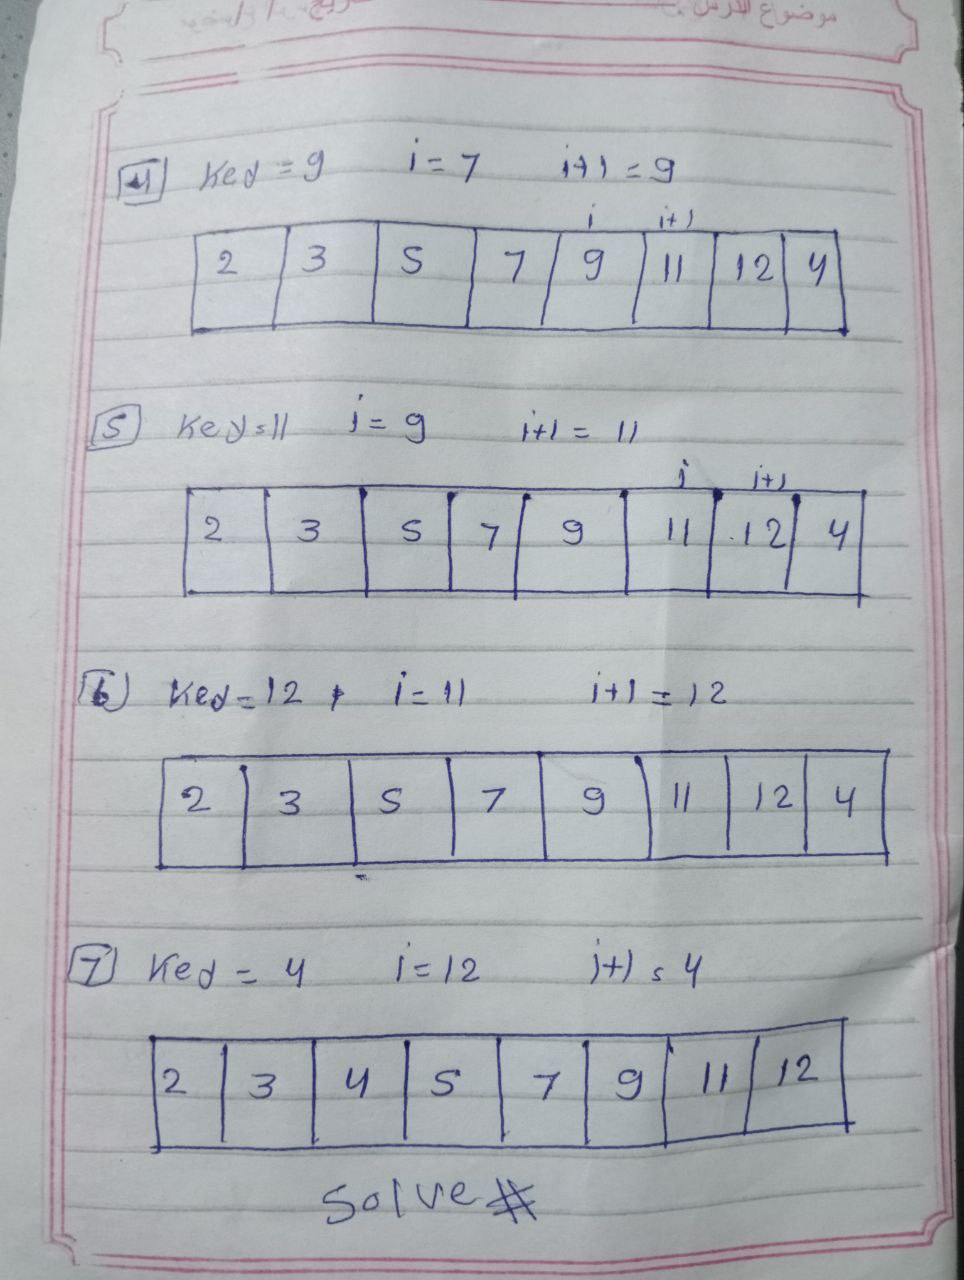 موضوع الدرس
4 Key = 9 i = 7 i+1 = 9
i i+1
2 3 5 7 9 11 12 4
5 Key = 11 i = 9 i+1 = 11
i i+1
2 3 5 7 9 11 12 4
6 Key = 12 , i = 11 i+1 = 12
2 3 5 7 9 11 12 4
7 Key = 4 i = 12 i+1 = 4
2 3 4 5 7 9 11 12
Solve #